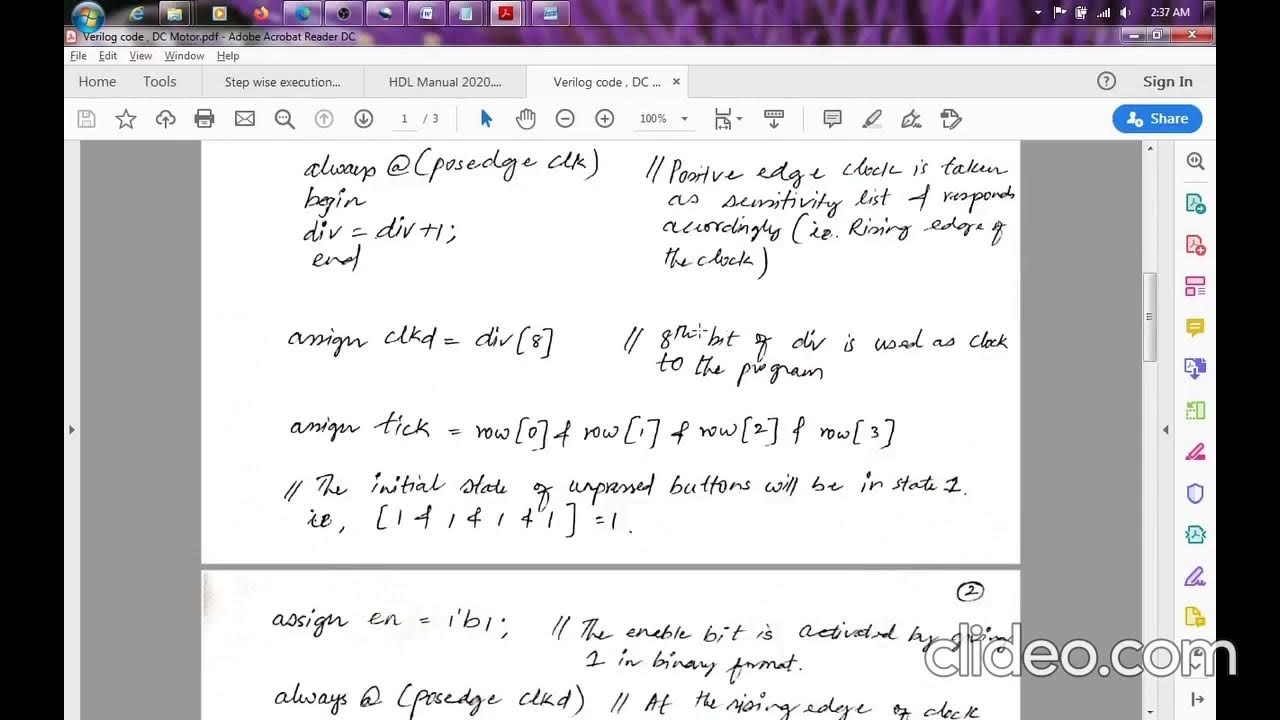 2:37 AM
Verilog code , DC Motor.pdf - Adobe Acrobat Reader DC
File Edit View Window Help
Home Tools Step wise execution... HDL Manual 2020.... Verilog code , DC ... × Sign In
1 / 3 100% Share
always @ (posedge clk) // Positive edge clock is taken
begin as sensitivity list & responds
div = div+1; accordingly (ie. Rising edge of
end the clock)
assign clkd = div[8] // 8th bit of div is used as clock
to the program
assign tick = row[0] & row[1] & row[2] & row[3]
// The initial state of unpressed buttons will be in state 1.
ie, [1 & 1 & 1 & 1] = 1.
2
assign en = 1'b1; // The enable bit is activated by giving
1 in binary format.
clideo.com
always @ (posedge clkd) // At the rising edge of clock